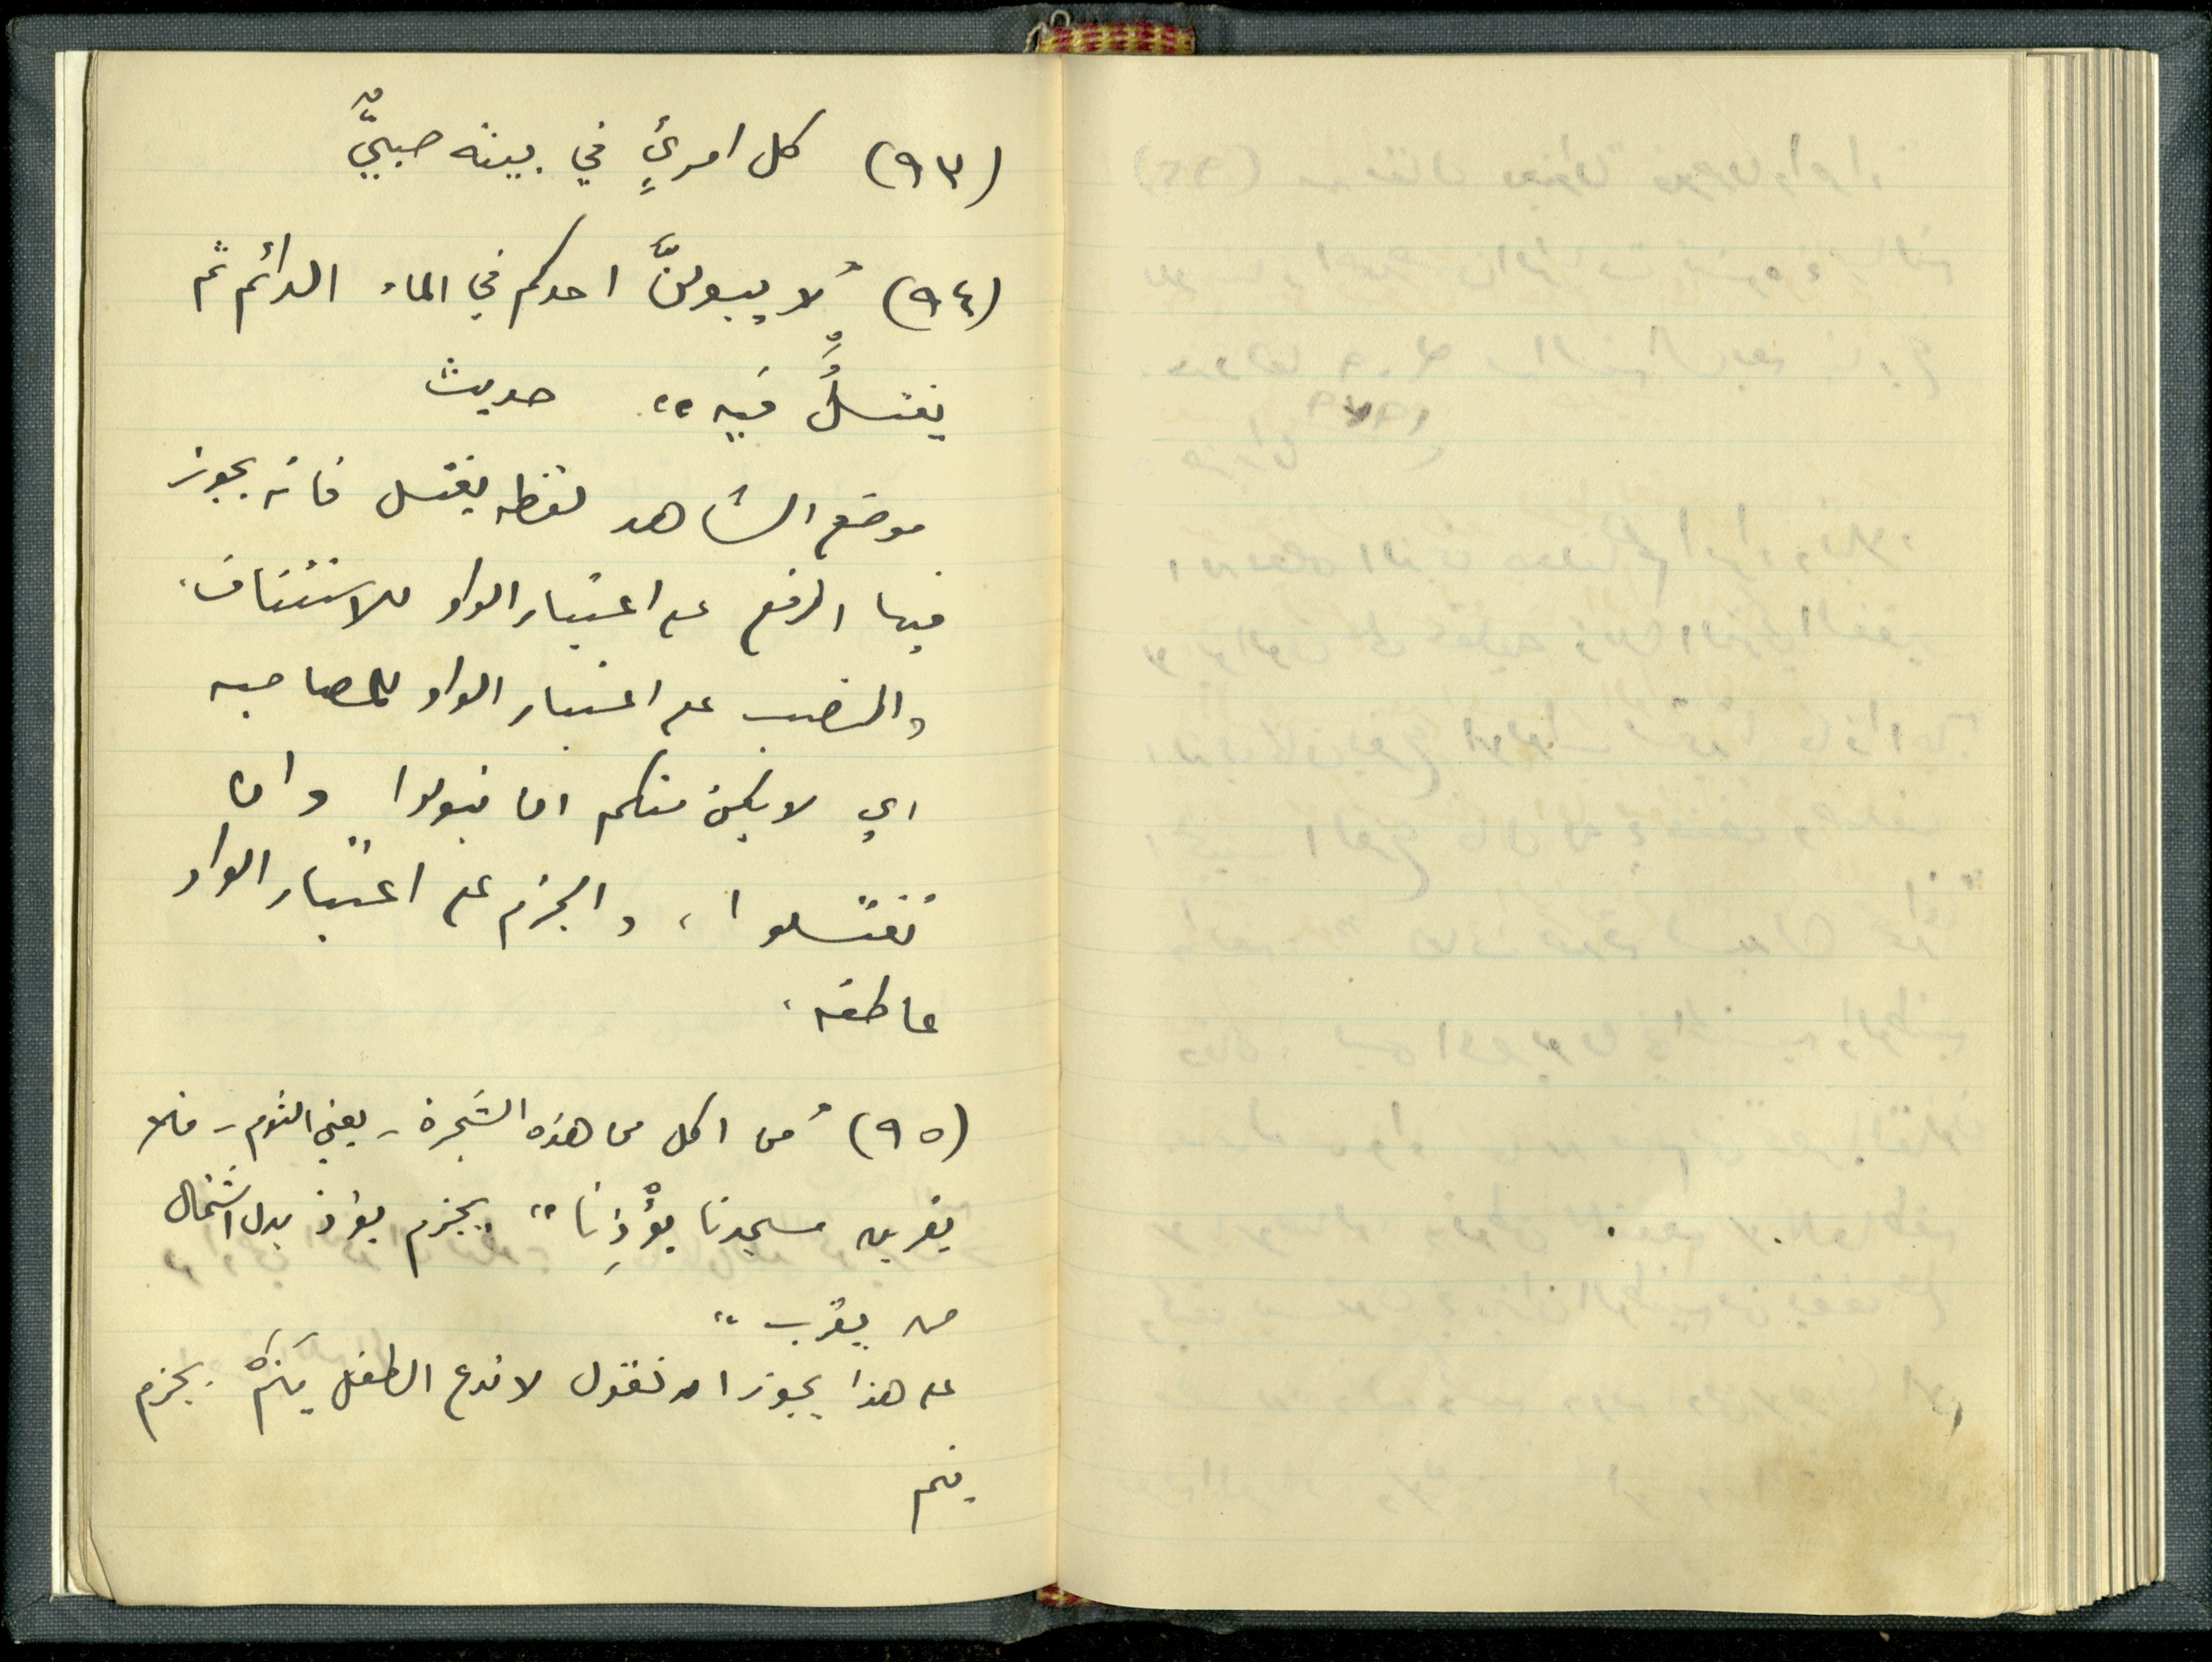 (٩٣) كل امرئٍ في بيته صبيٌّ
(٩٤) "لا يبولنَّ احدكم في الماء الدائم ثم
يغتسلُ فيه" حديث
موضع الشاهد لفظه يغتسل فانه يجوز
فيها الرفع على اعتبار الواو للاستئناف.
والنصب على اعتبار الواو للمصاحبه
اي لا يكن منكم ان تبولوا وان
تغتسلوا، والجزم على اعتبار الواو
عاطفه.
(٩٥) "من اكل من هذه الشجرة - يعني الثوم - فلا
يقربن مسجدنا يؤْذِنا" بجزم يؤذ بدل اشتمال
من يقرب"
على هذا يجوز ان نقول لا تدع الطفل ينمْ. بجزم
ينم